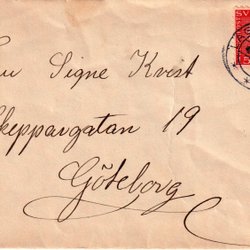 ru Signe Kvist
keppargatan 19
Göteborg
SV